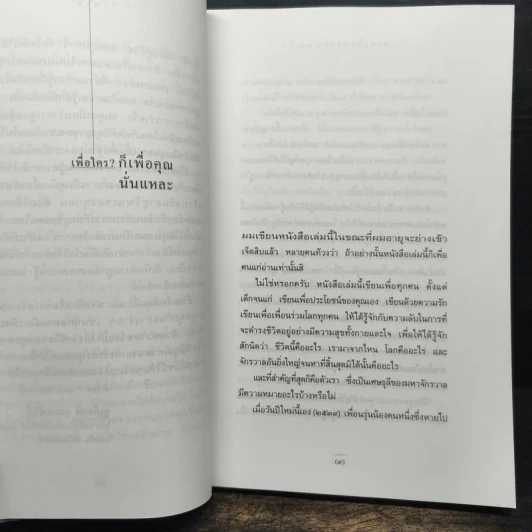 เพื่อใคร? ก็เพื่อคุณ
นั่นแหละ
ผมเขียนหนังสือเล่มนี้ในขณะที่ผมอายุจะย่างเข้า
เจ็ดสิบแล้ว หลายคนท้วงว่า ถ้าอย่างนั้นหนังสือเล่มนี้ก็เพื่อ
คนแก่อ่านเท่านั้นสิ
ไม่ใช่หรอกครับ หนังสือเล่มนี้เขียนเพื่อทุกคน ตั้งแต่
เด็กจนแก่ เขียนเพื่อประโยชน์ของคุณเอง เขียนด้วยความรัก
เขียนเพื่อเพื่อนร่วมโลกทุกคน ให้ได้รู้จักกับความลับในการที่
จะดำรงชีวิตอยู่อย่างมีความสุขทั้งกายและใจ เพื่อให้ได้รู้จัก
สักนิดว่า ชีวิตนี้คืออะไร เรามาจากไหน โลกคืออะไร และ
จักรวาลอันยิ่งใหญ่จนหาที่สิ้นสุดมิได้นั้นคืออะไร
และที่สำคัญที่สุดก็คือตัวเรา ซึ่งเป็นเศษธุลีของมหาจักรวาล
มีความหมายอะไรบ้างหรือไม่
เมื่อวันปีใหม่นี้เอง (๒๕๒๙) เพื่อนรุ่นน้องคนหนึ่งซึ่งหายไป